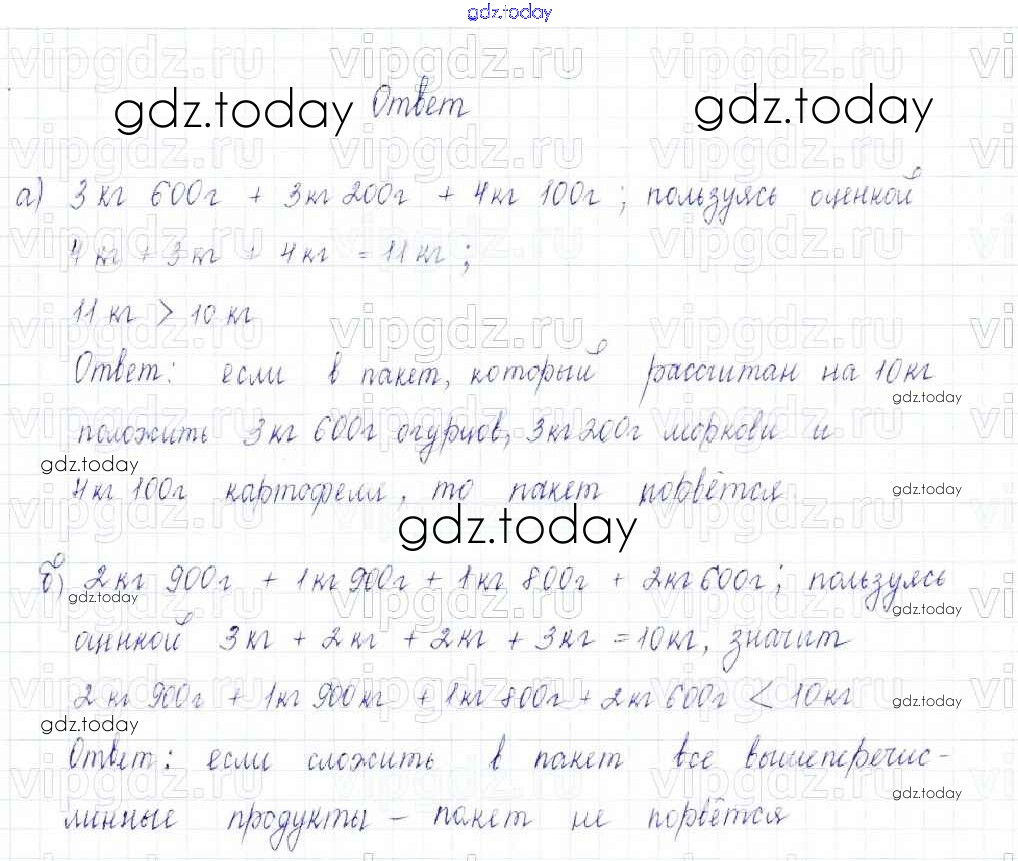 gdz.today
gdz.today Ответ gdz.today
а) 3 кг 600г + 3кг 200г + 4кг 100г ; пользуясь оценкой
4 кг + 3 кг + 4 кг = 11 кг ;
11 кг > 10 кг
Ответ: если в пакет, который рассчитан на 10кг
gdz.today
положить 3кг 600г огурцов, 3кг 200г моркови и
gdz.today
4кг 100г картофеля, то пакет порвётся.
gdz.today
gdz.today
б) 2кг 900г + 1кг 900г + 1кг 800г + 2кг 600г ; пользуясь
gdz.today
gdz.today
оценкой 3кг + 2кг + 2кг + 3кг = 10кг, значит
2 кг 900г + 1кг 900кг + 1кг 800г + 2кг 600г < 10кг
gdz.today
gdz.today
Ответ: если сложить в пакет все вышеперечис-
gdz.today
линные продукты – пакет не порвётся
vipgdz.ru